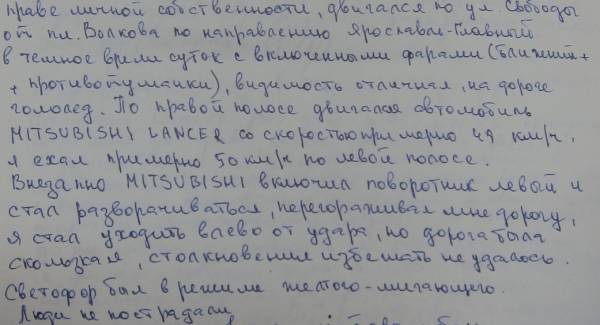 праве личной собственности, двигался по ул. Свободы
от пл. Волкова по направлению Ярославль-Главный
в темное время суток с включенными фарами (ближний +
+ противотуманки), видимость отличная, на дороге
гололед. По правой полосе двигался автомобиль
MITSUBISHI LANCER со скоростью примерно 49 км/ч,
я ехал примерно 50 км/ч по левой полосе.
Внезапно MITSUBISHI включил поворотник левый и
стал разворачиваться, перегораживая мне дорогу,
я стал уходить влево от удара, но дорога была
скользкая, столкновения избежать не удалось.
Светофор был в режиме желтого-мигающего.
Люди не пострадали